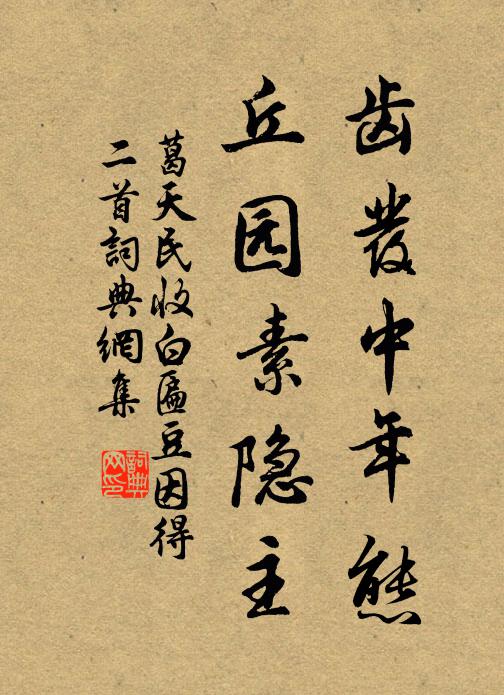 齿發中年態
丘园素隐主
葛天民收白匾豆因得
二首詞典網集
詞典
网印